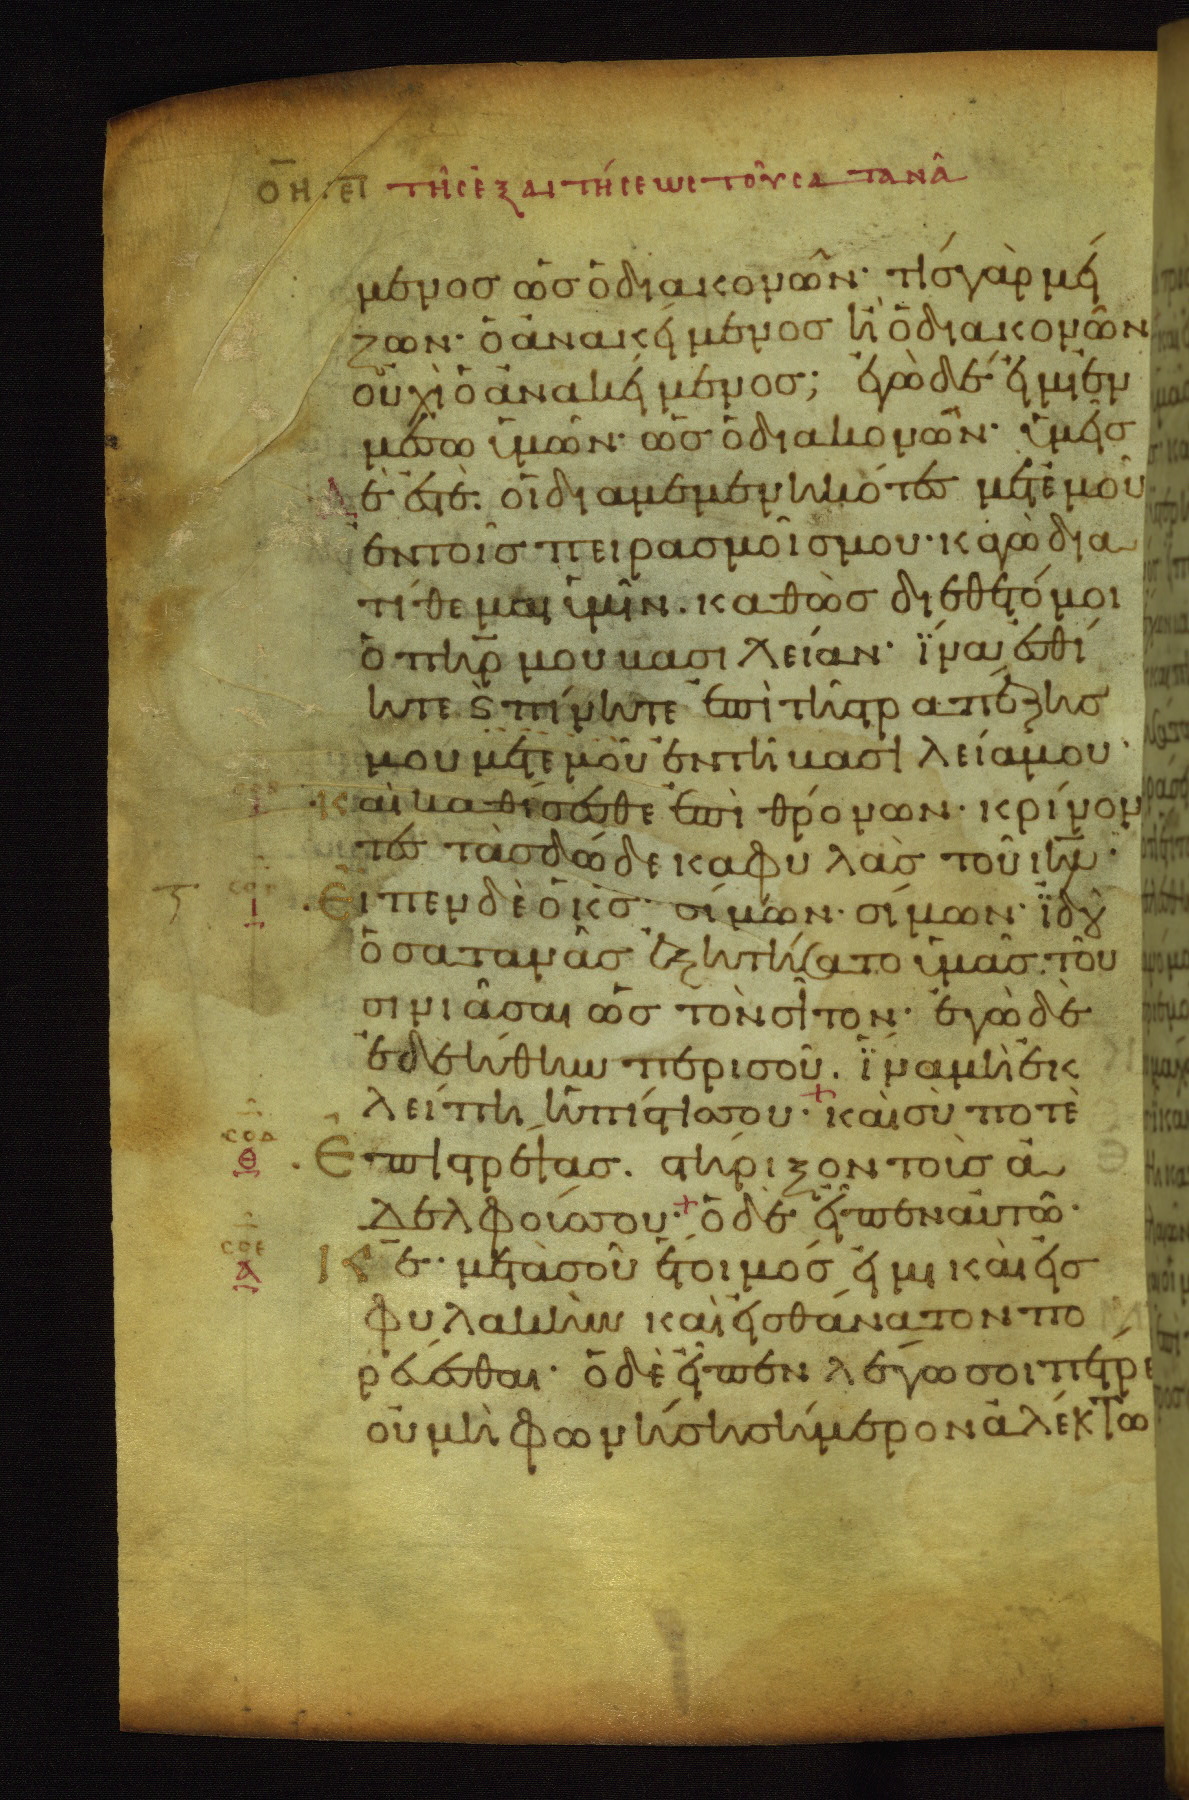 ΟΗ. ΕΠ τῆς ἐξαιτήσεως τοῦ σατανᾶ
μενος ὡς ὁ διακονῶν· τίς γὰρ μεί
ζων· ὁ ἀνακείμενος ἢ ὁ διακονῶν
οὐχὶ ὁ ἀνακείμενος; ἐγὼ δέ εἰμι ἐν
μέσω ὑμῶν· ὡς ὁ διακονῶν· ὑμεῖς
δέ ἐστε. οἱ διαμεμενηκότες μετ ἐμοῦ
ἐν τοῖς πειρασμοῖς μου· κἀγὼ δια
τίθεμαι ὑμῖν. καθὼς διέθετό μοι
ὁ πηρ μου βασιλείαν· ἵνα ἐσθί
ητε ϗ πίνητε ἐπὶ τῆς τραπέζης
μου μετ ἐμοῦ ἐν τῆ βασιλεία μου·
καὶ καθίσεσθε ἐπὶ θρόνων· κρίνον
τες τὰς δώδεκα φυλὰς τοῦ ιηλ·
Εἶπεν δὲ ὁ κς· σίμων· σίμων· ἰδοὺ
ὁ σατανᾶς ἐξητήσατο ὑμᾶς· τοῦ
σινιᾶσαι ὡς τὸν σῖτον· ἐγὼ δὲ
ἐδεήθην περὶ σοῦ. ἵνα μὴ ἐκ
λείπη ἡ πίστις σου· + καὶ σύ ποτε
σοδ
θ
Ἐπιστρέψας. στήριξον τοὺς ἀ
δελφούς σου· + ὁ δὲ εἶπεν αὐτῶ·
σοε
α
κε· μετὰ σοῦ ἕτοιμός εἰμι καὶ εἰς
φυλακὴν καὶ εἰς θάνατον πο
ρεύεσθαι· ὁ δὲ εἶπεν λέγω σοι πέτρε
οὐ μὴ φωνήσῃ σήμερον ἀλέκτω